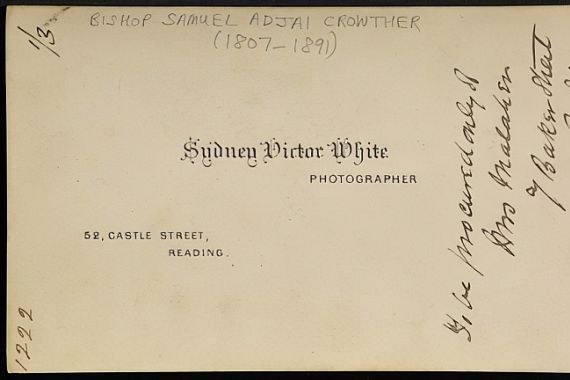 1/3
BISHOP SAMUEL ADJAI CROWTHER
(1807-1891)
Sydney Victor White
PHOTOGRAPHER
52, CASTLE STREET,
READING.
1222
To be procured only of
Mrs
7 Baker Street